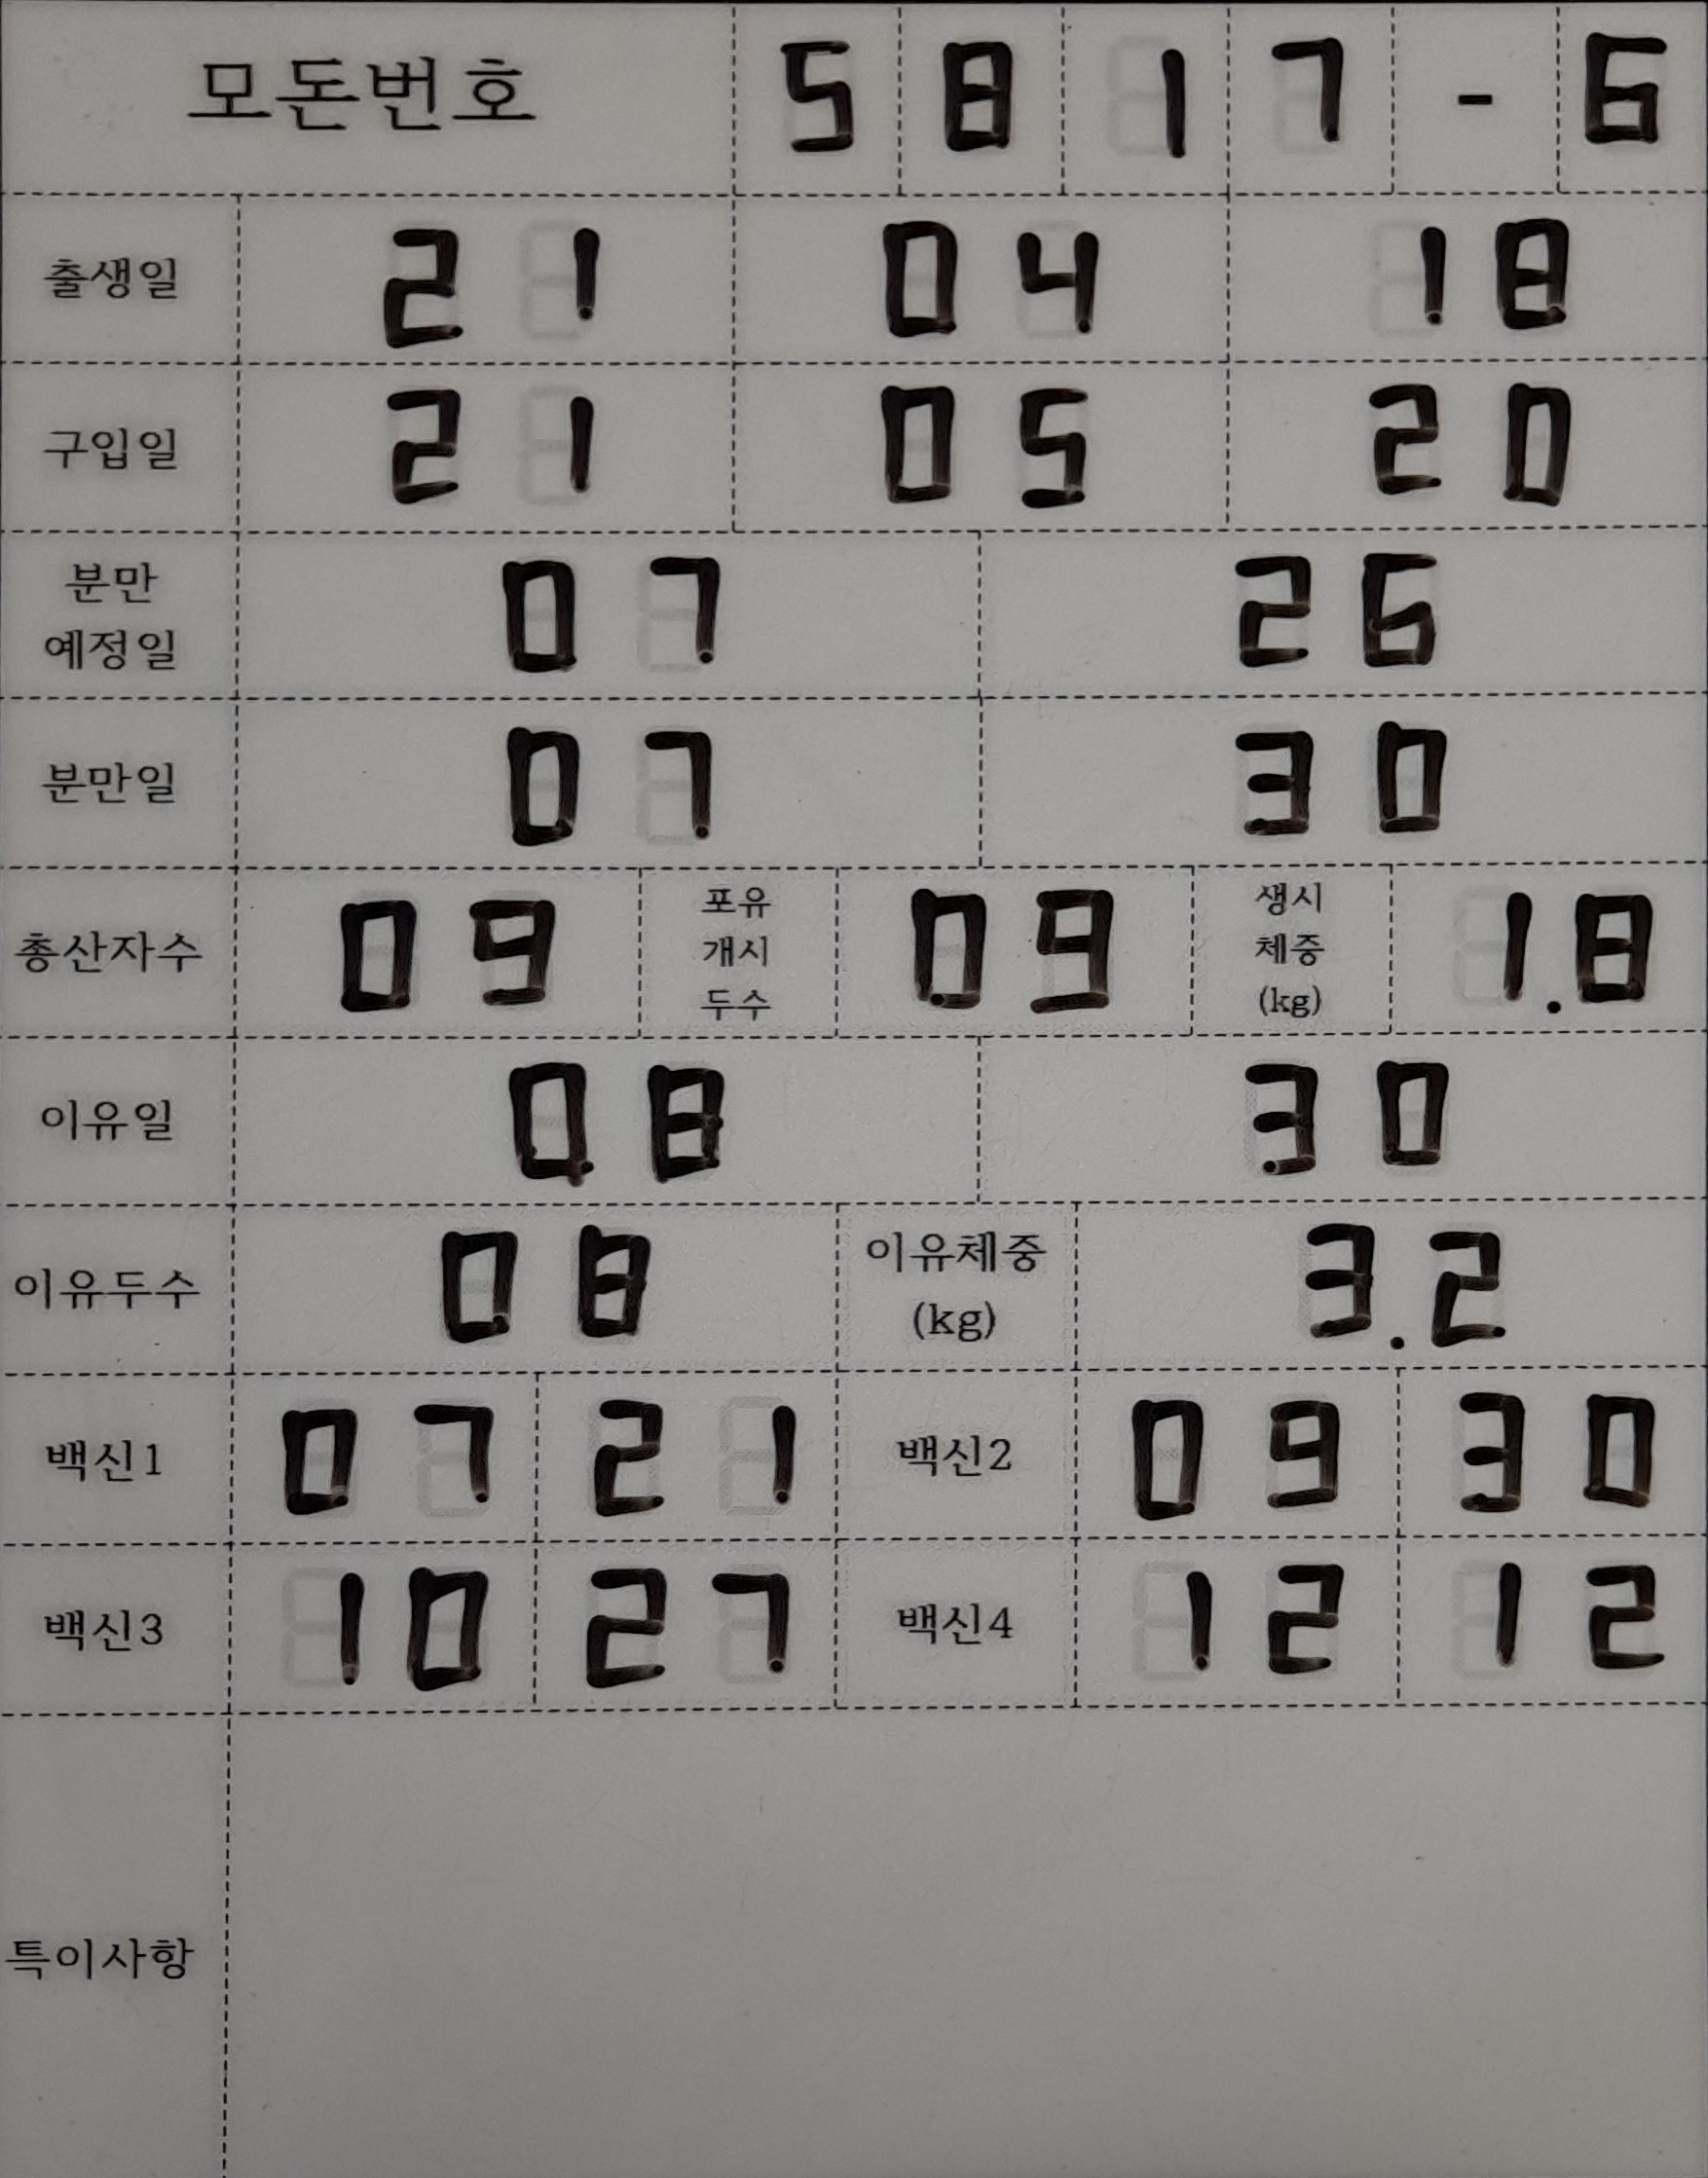 모돈번호 5 8 1 7 - 6
출생일 21 04 18
구입일 21 05 20
분만
예정일 07 26
분만일 07 30
총산자수 09 포유 개시 두수 09 생시 체중 (kg) 1.8
이유일 08 30
이유두수 08 이유체중 (kg) 3.2
백신1 07 21 백신2 09 30
백신3 10 27 백신4 12 12
특이사항